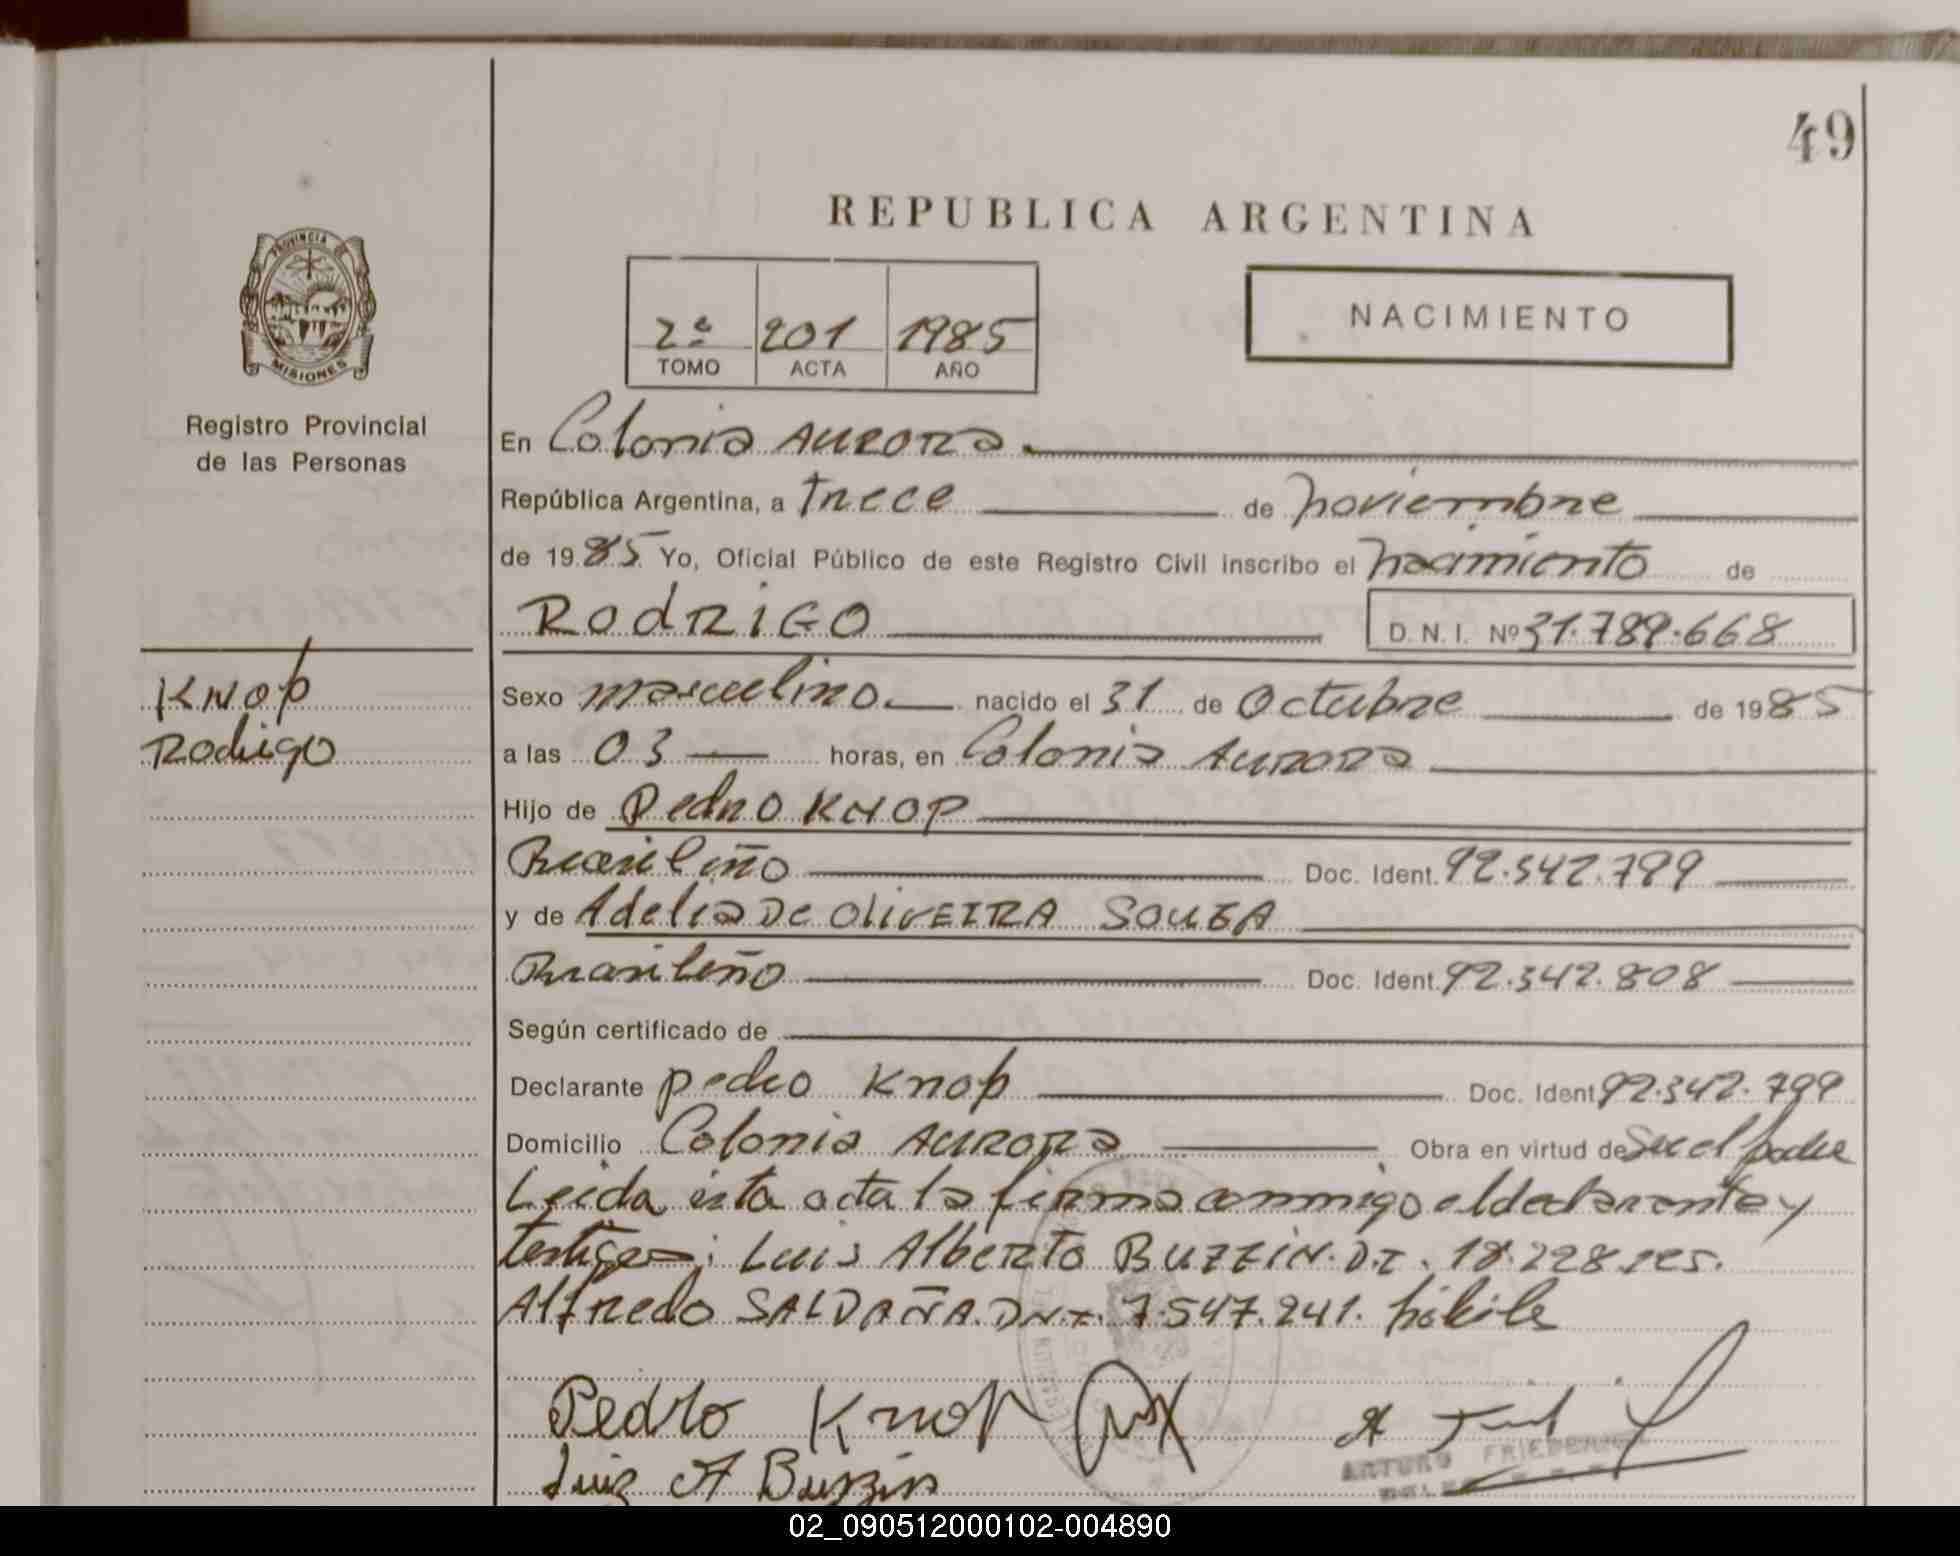 49
REPUBLICA ARGENTINA
PROVINCIA DE
MISIONES
2º 201 1985
TOMO ACTA AÑO
NACIMIENTO
Registro Provincial
de las Personas
En Colonia AURORA
República Argentina, a trece de noviembre
de 1985 Yo, Oficial Público de este Registro Civil inscribo el nacimiento de
RodRiGO D. N. I. Nº 31.789.668
KNop
Rodrigo
Sexo masculino nacido el 31 de Octubre de 1985
a las 03 horas, en Colonia Aurora
Hijo de Pedro KNOP
Brasileño Doc. Ident.
y de Adelia De OLiVEIRA SOUZA
Brasileño Doc. Ident. 92.342.808
Según certificado de
Declarante pedro Knop Doc. Ident. 92.342.799
Domicilio Colonia AURORA Obra en virtud de Ser el padre
Leida esta acta la firma conmigo el declarante y
testigos: Luis Alberto BUZZIN. D.I. 18.228
Alfredo SALDAÑA. DNI. 7.547.241. hábiles
Pedro Knop
Luiz A Buzzin
ARTURO
02_090512000102-004890